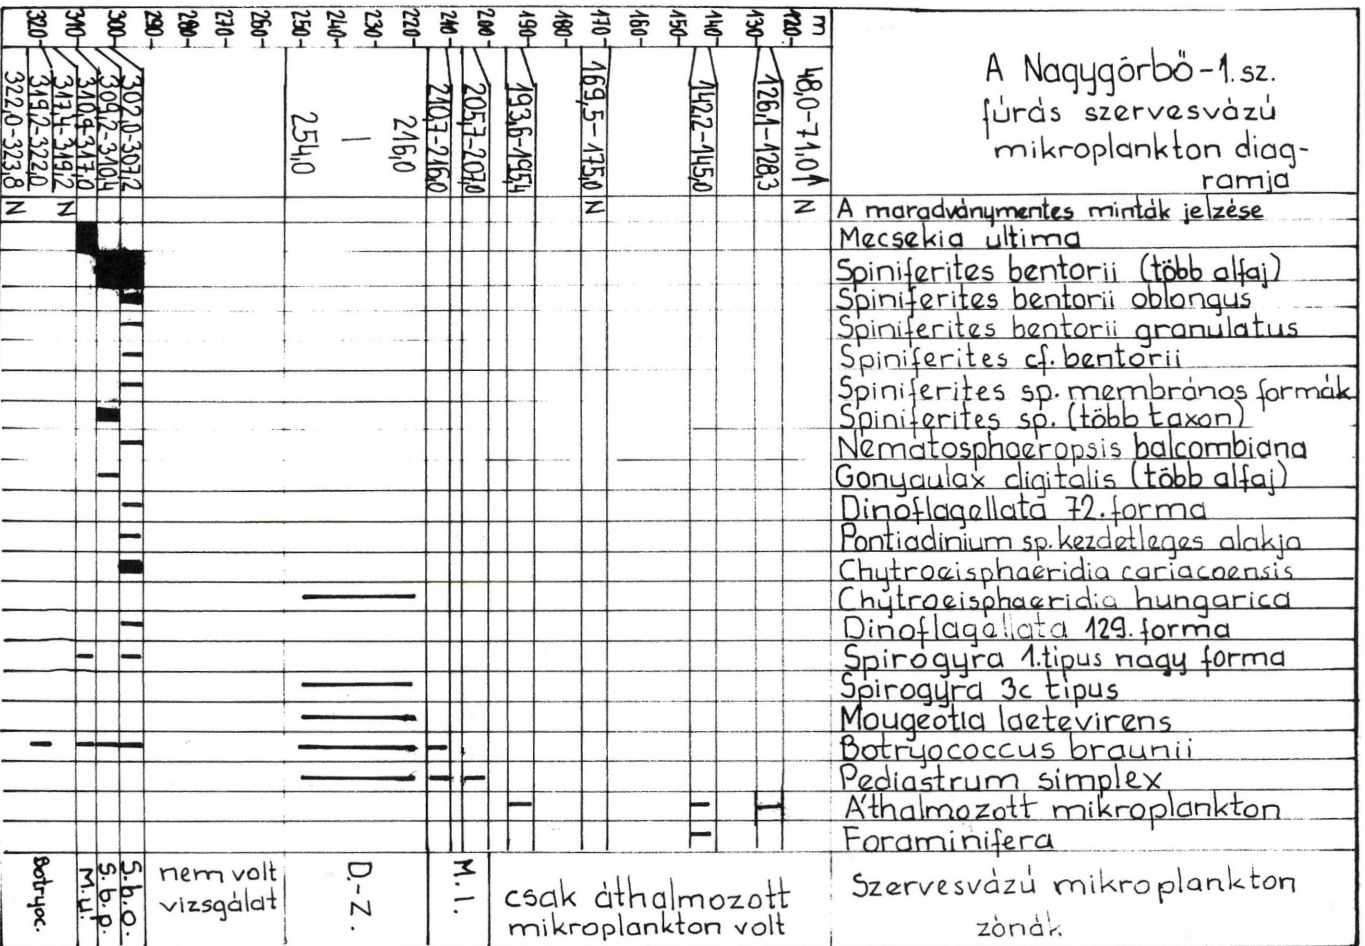 A Nagygörbő-1.sz.
fúrás szervesvázú
mikroplankton diag-
ramja
m
120
130
140
150
160
170
180
190
200
210
220
230
240
250
260
270
280
290
300
310
320
48,0-71,0
126,1-128,3
142,2-145,0
169,5-175,0
193,6-195,4
205,7-207,0
210,7-216,0
216,0
254,0
302,0-307,2
309,2-310,4
310,9-317,0
317,4-319,2
319,2-322,0
322,0-323,8
N N N N
A maradványmentes minták jelzése
Mecsekia ultima
Spiniferites bentorii (több alfaj)
Spiniferites bentorii oblongus
Spiniferites bentorii granulatus
Spiniferites cf. bentorii
Spiniferites sp. membrános formák
Spiniferites sp. (több taxon)
Nematosphaeropsis balcombiana
Gonyaulax digitalis (több alfaj)
Dinoflagellata 72. forma
Pontiadinium sp. kezdetleges alakja
Chytroeisphaeridia cariacoensis
Chytroeisphaeridia hungarica
Dinoflagellata 129. forma
Spirogyra 1. tipus nagy forma
Spirogyra 3c tipus
Mougeotia laetevirens
Botryococcus braunii
Pediastrum simplex
Áthalmozott mikroplankton
Foraminifera
Szervesvázú mikroplankton
zónák
csak áthalmozott
mikroplankton volt
M. l.
D.-Z.
nem volt
vizsgálat
S. b. o.
S. b. p.
M. u.
Botryoc.